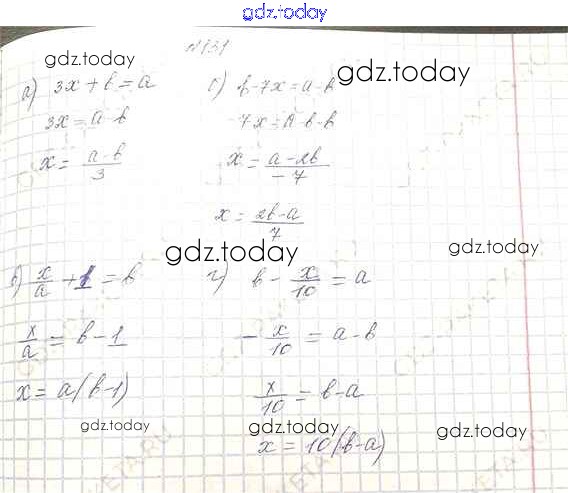 gdz.today
gdz.today
N131
gdz.today
а) 3x + b = a
3x = a - b
x = (a - b)/3
б) b - 7x = a - b
-7x = a - b - b
x = (a - 2b)/(-7)
x = (2b - a)/7
gdz.today
gdz.today
в) x/a + 1 = b
x/a = b - 1
x = a(b - 1)
г) b - x/10 = a
- x/10 = a - b
x/10 = b - a
x = 10(b - a)
gdz.today
gdz.today
gdz.today